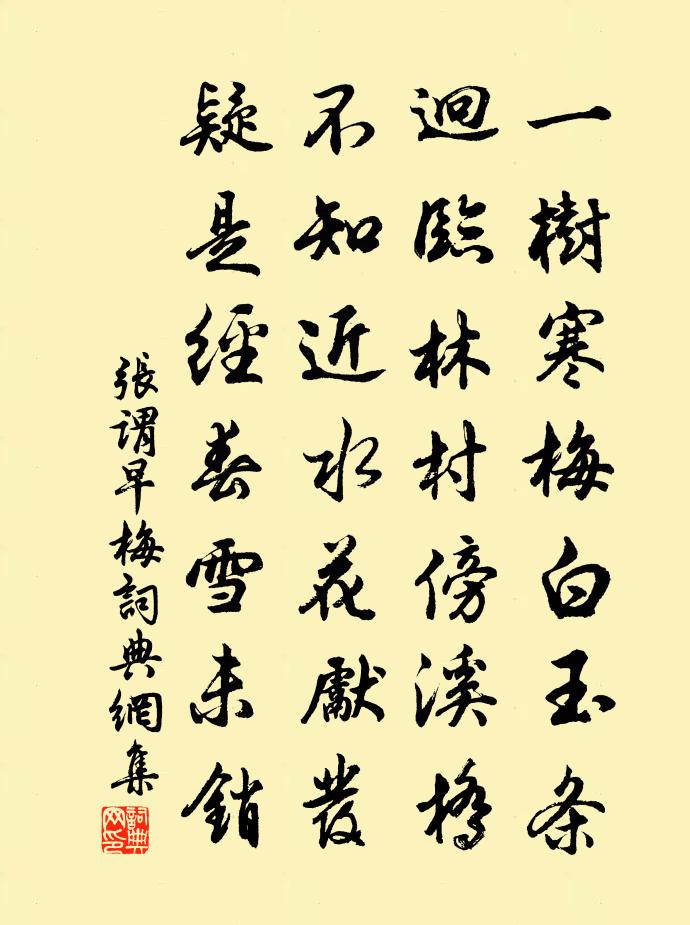 一樹寒梅白玉条
迥臨林村傍溪橋
不知近水花獻發
疑是經春雪未銷
張謂早梅詞典網集
詞典网印